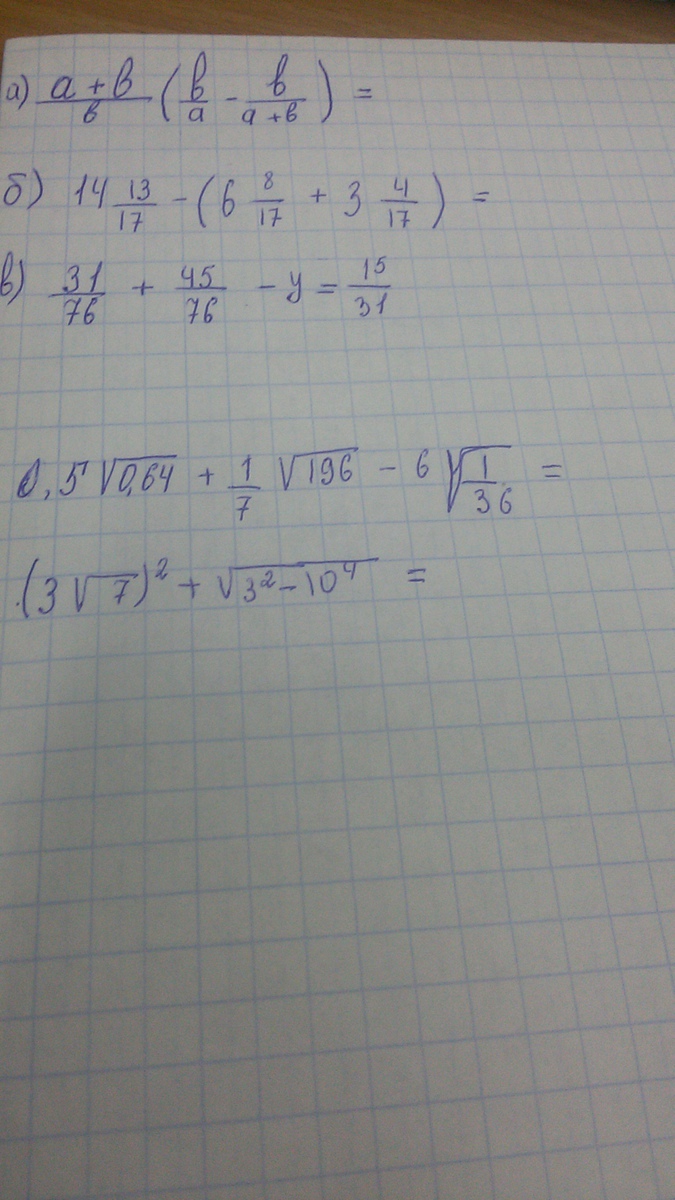 а) (a+b)/b (b/a - b/(a+b)) =
б) 14 13/17 - (6 8/17 + 3 4/17) =
в) 31/76 + 45/76 - y = 15/31
0,5 √0,64 + 1/7 √196 - 6 √(1/36) =
(3√7)² + √(3²-10⁴) =